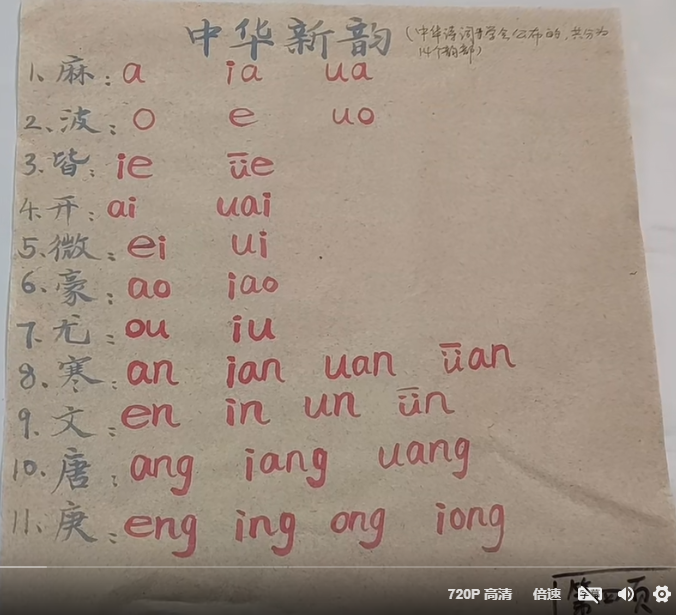 中华新韵(中华诗词学会公布的,共分为
14个韵部)
1、麻:a ia ua
2、波:o e uo
3、皆:ie üe
4、开:ai uai
5、微:ei ui
6、豪:ao iao
7、尤:ou iu
8、寒:an ian uan üan
9、文:en in un ün
10、唐:ang iang uang
11、庚:eng ing ong iong
第四页
720P 高清 倍速 字幕